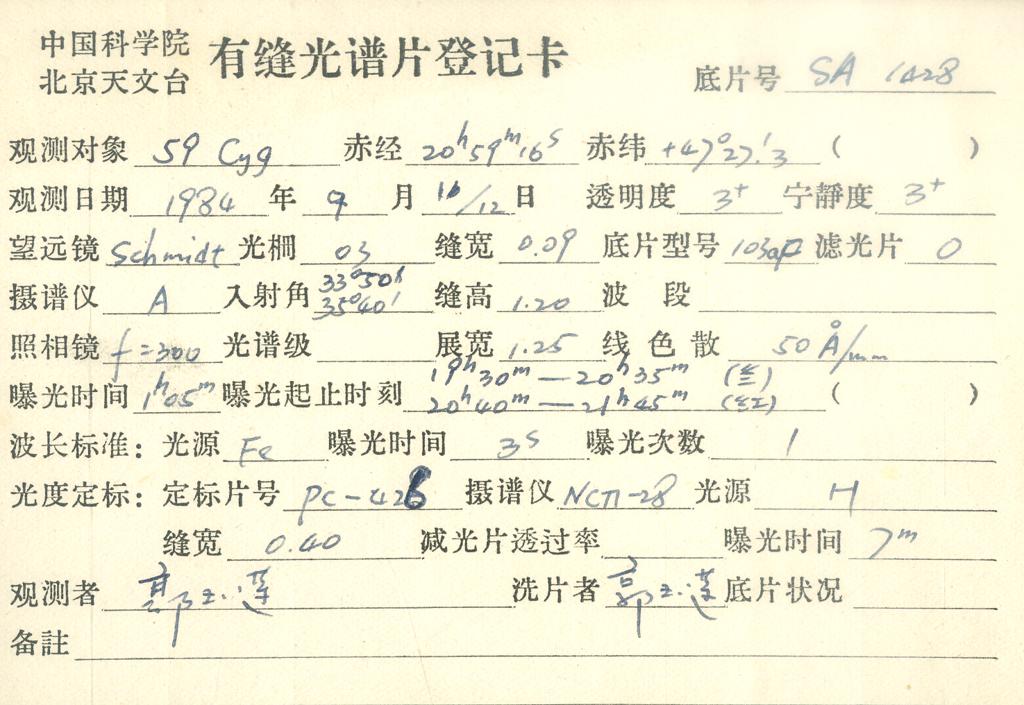 中国科学院
北京天文台
有缝光谱片登记卡
底片号 SA 1428
观测对象 59 Cyg 赤经 20ʰ59ᵐ16ˢ 赤纬 +47°27.′3 ( )
观测日期 1984 年 9 月 11/12 日 透明度 3⁺ 宁静度 3⁺
望远镜 Schmidt 光栅 03 缝宽 0.09 底片型号 103aF 滤光片 0
摄谱仪 A 入射角 33°50′ 35°40′ 缝高 1.20 波段
照相镜 f=300 光谱级 展宽 1.25 线色散 50 Å/mm
曝光时间 1ʰ05ᵐ 曝光起止时刻 19ʰ30ᵐ—20ʰ35ᵐ (兰) 20ʰ40ᵐ—21ʰ45ᵐ (红) ( )
波长标准: 光源 Fe 曝光时间 3ˢ 曝光次数 1
光度定标: 定标片号 PC-426 摄谱仪 光源 H
缝宽 0.40 减光片透过率 曝光时间 7ᵐ
观测者 郭玉莲 洗片者 郭玉莲 底片状况
备註